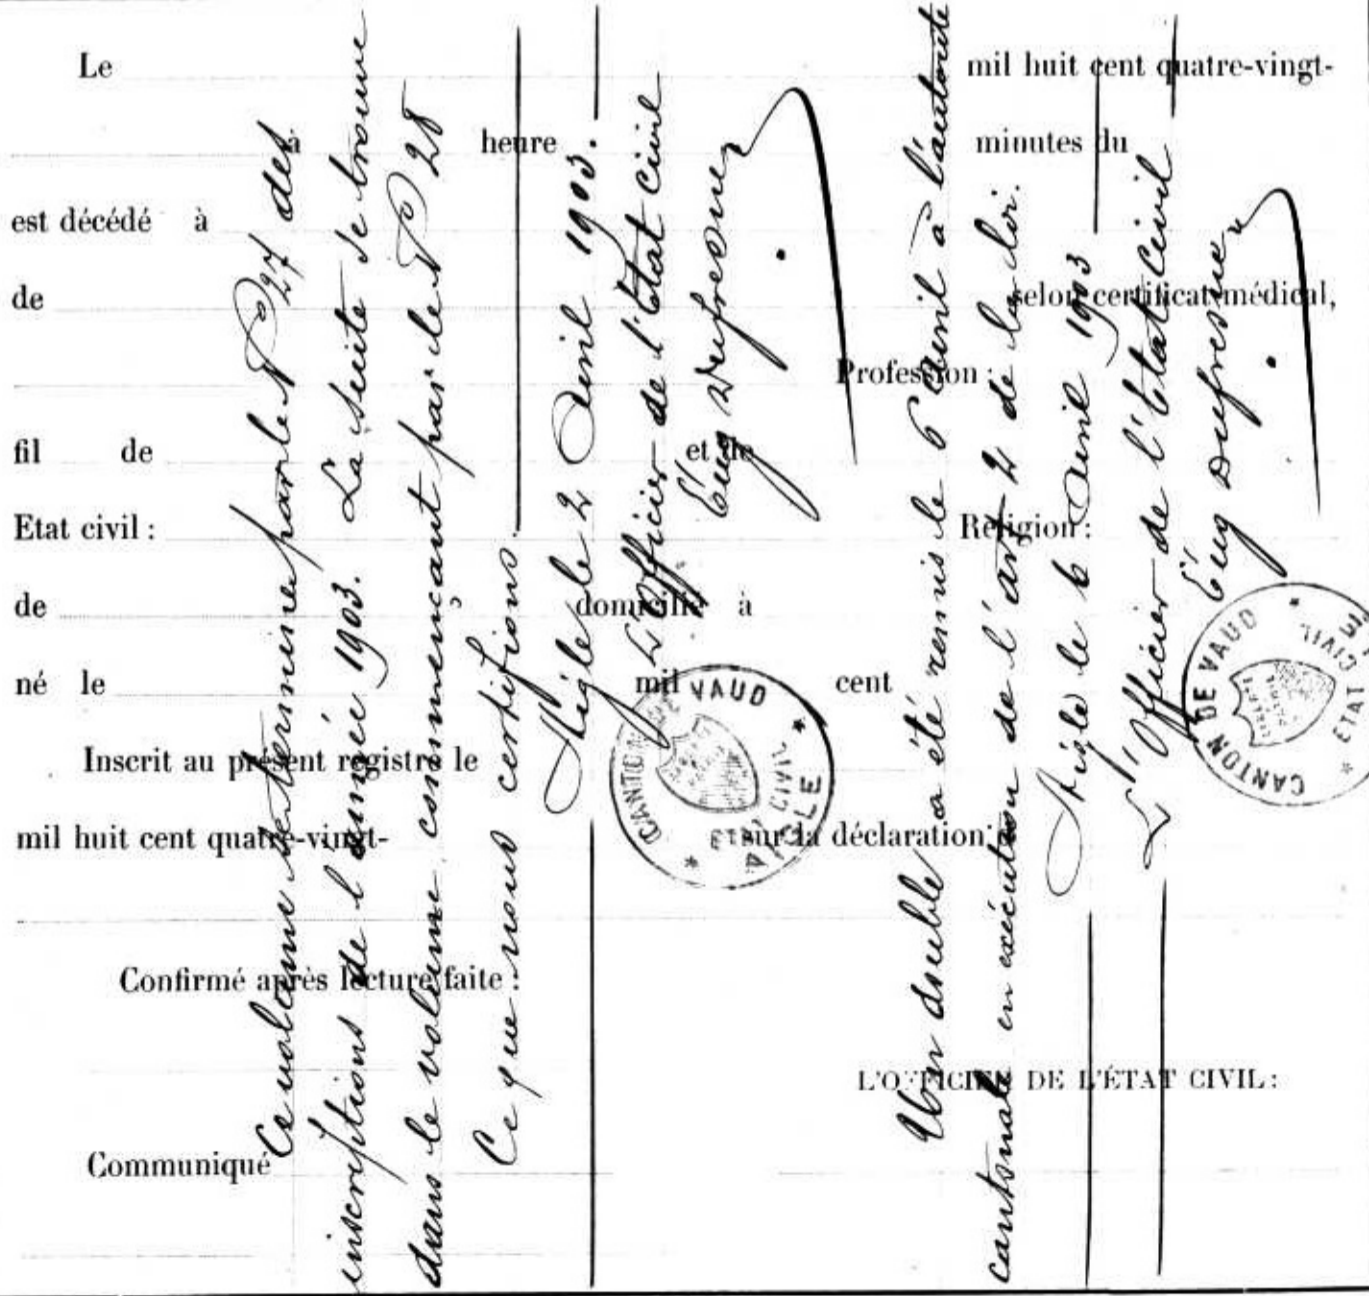 Le mil huit cent quatre-vingt-
à heure minutes du
est décédé à
de selon certificat médical,
Profession :
fil de et de
Etat civil : Religion :
de domicilié à
né le mil cent
Inscrit au présent registre le
mil huit cent quatre-vingt- sur la déclaration
Confirmé après lecture faite :
L'OFFICIER DE L'ÉTAT CIVIL :
Communiqué
Ce volume se termine par le No 27 des
inscriptions de l'année 1903. La suite se trouve
dans le volume commençant par le No 28
Ce que nous certifions.
Aigle le 2 Avril 1903.
L'Officier de l'Etat civil
Eug Dufresne
CANTON DE VAUD
ETAT CIVIL
AIGLE
Un double a été remis le 6 Avril à l'autorité
cantonale en exécution de l'art 2 de la loi.
Aigle le 6 Avril 1903
L'Officier de l'Etat Civil
Eug Dufresne
CANTON DE VAUD
ETAT CIVIL